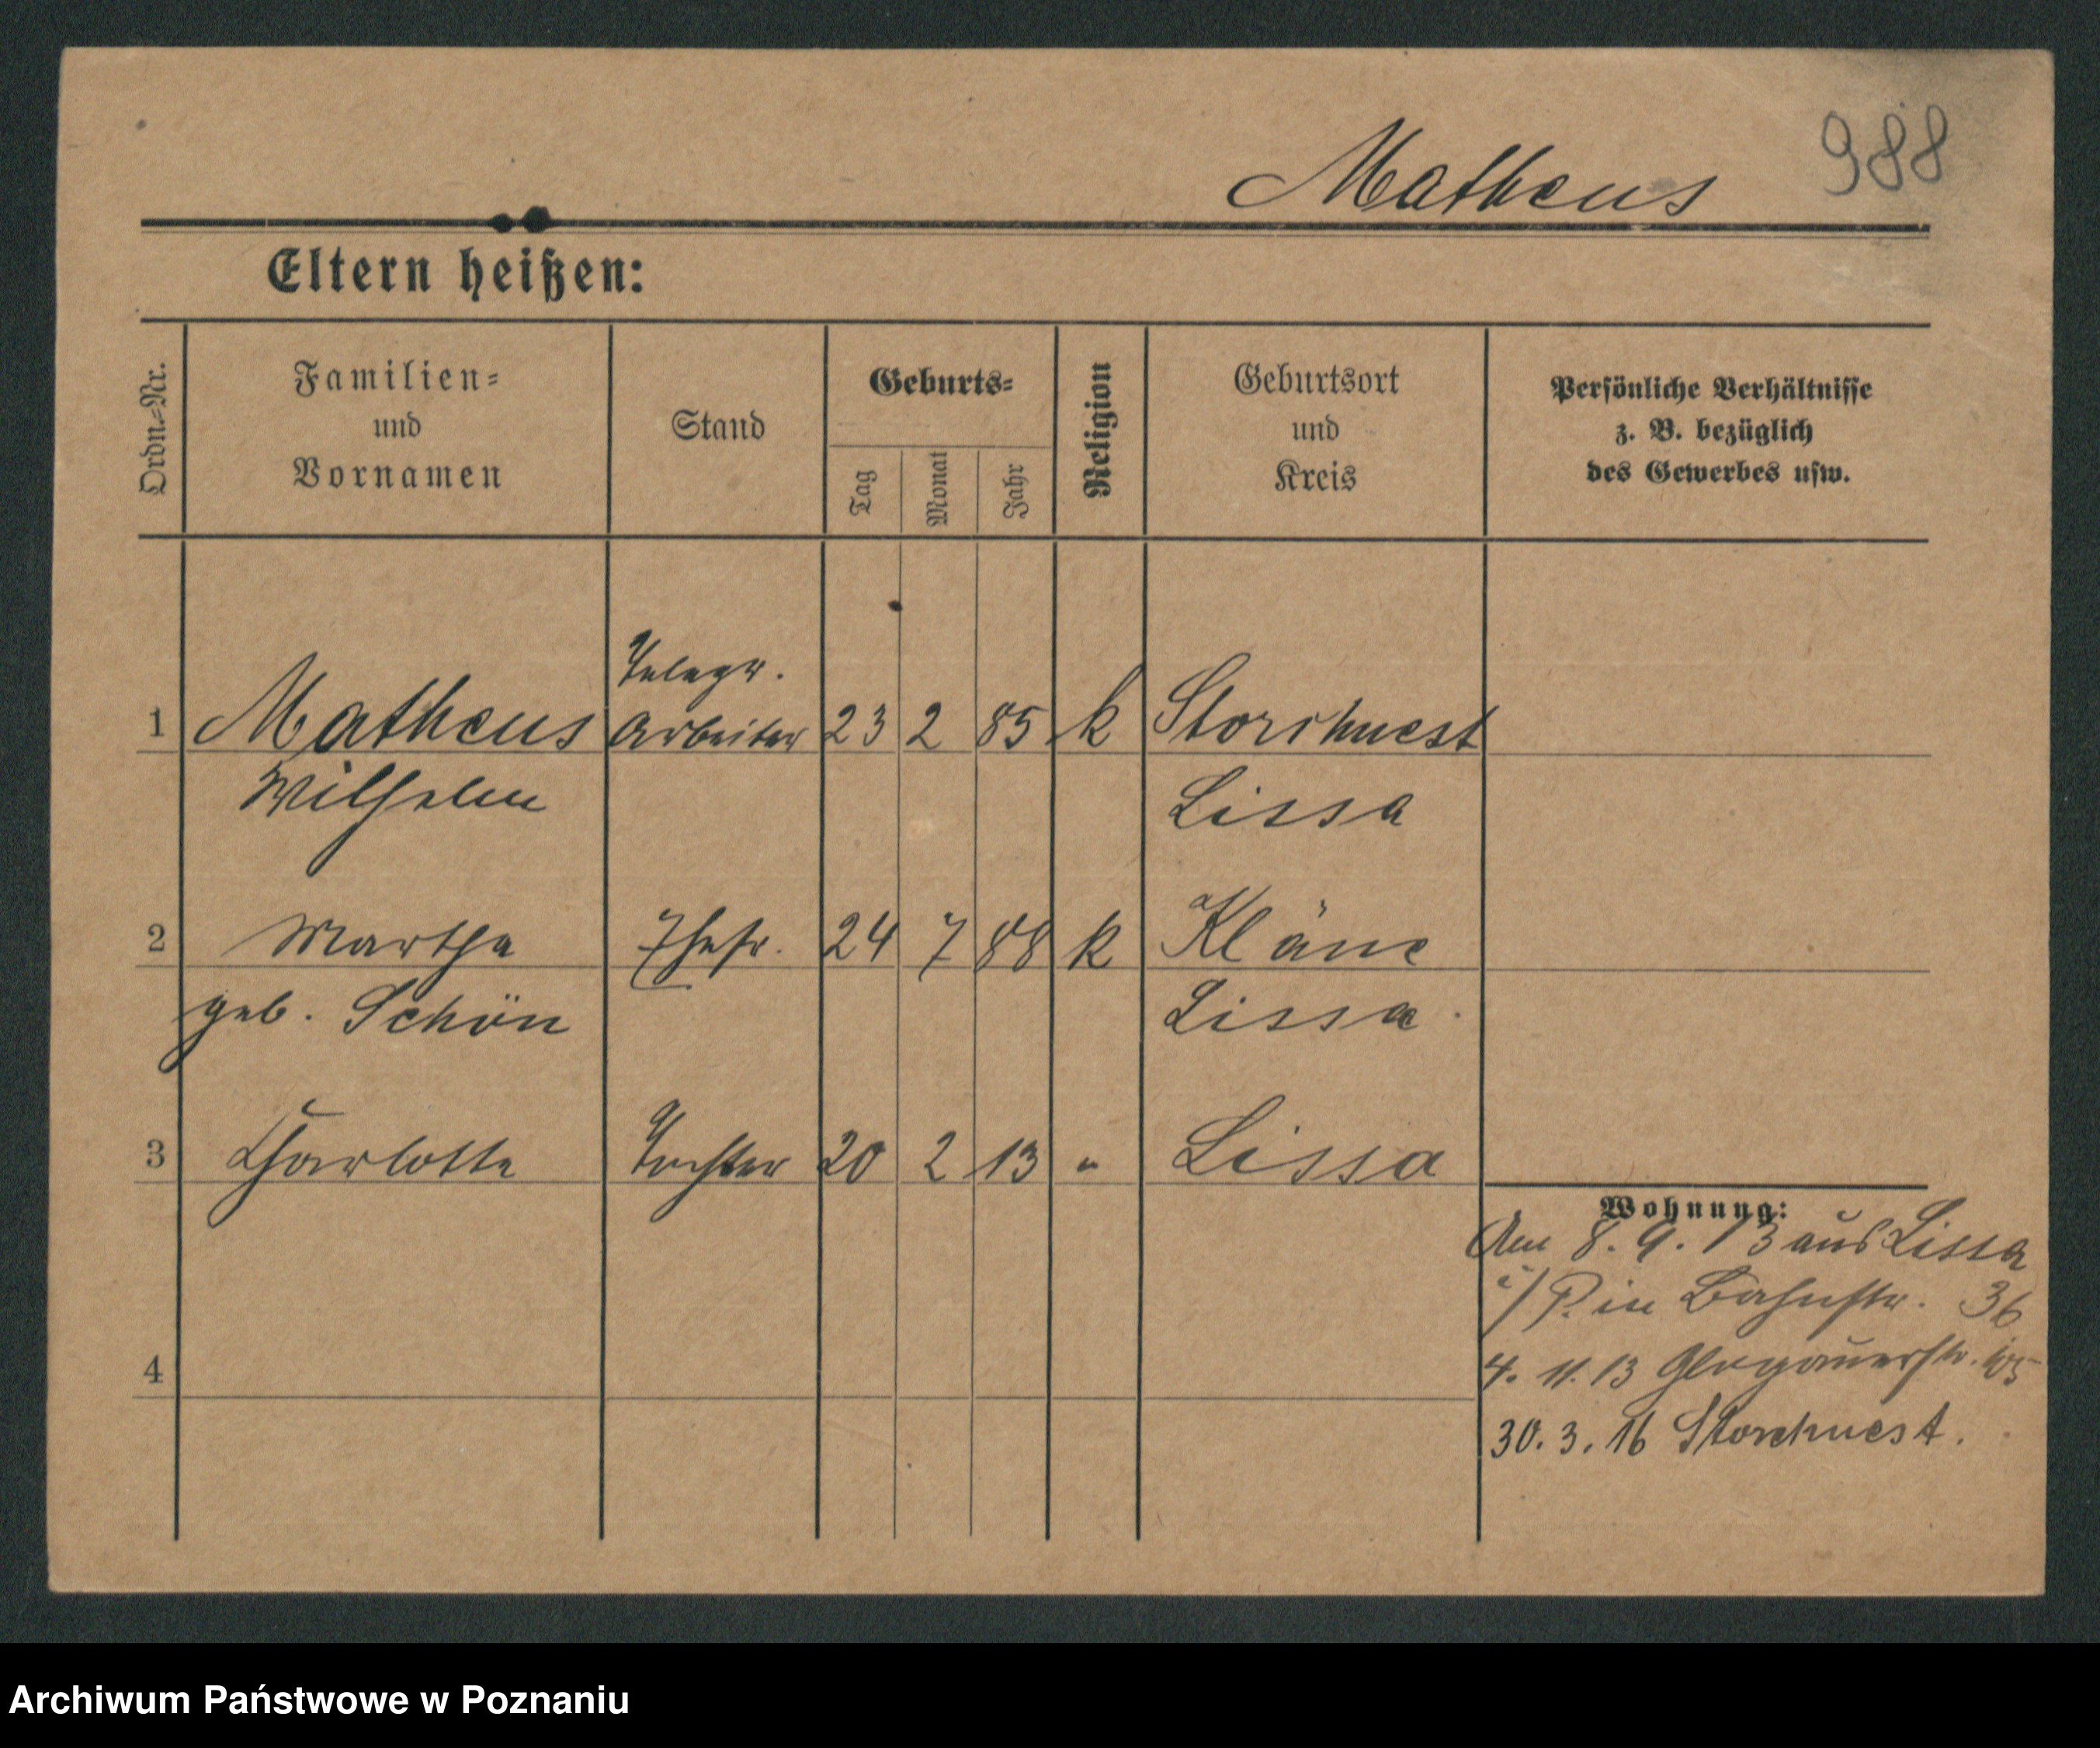 988
Matheus
Eltern heißen:
Ordn.-Nr.
Familien-
und
Vornamen
Stand
Geburts-
Tag
Monat
Jahr
Religion
Geburtsort
und
Kreis
Persönliche Verhältnisse
z. B. bezüglich
des Gewerbes usw.
Telegr.
1 Matheus Arbeiter 23 2 85 k Storchnest
Wilhelm Lissa
2 Martha Ehefr. 24 7 88 k Kläne
geb. Schön Lissa.
3 Charlotte Tochter 20 2 13 " Lissa
Wohnung:
Am 8. 9. 13 aus Lissa
i/P. in Bahnstr. 36
4
4. 11. 13 Glogauerstr.
30. 3. 16 Storchnest.
Archiwum Państwowe w Poznaniu